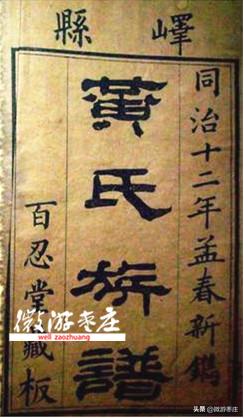 嶧縣
同治十二年孟春新鐫
黃氏族譜
百忍堂藏板
微游枣庄
weii zaozhuang
头条 @微游枣庄